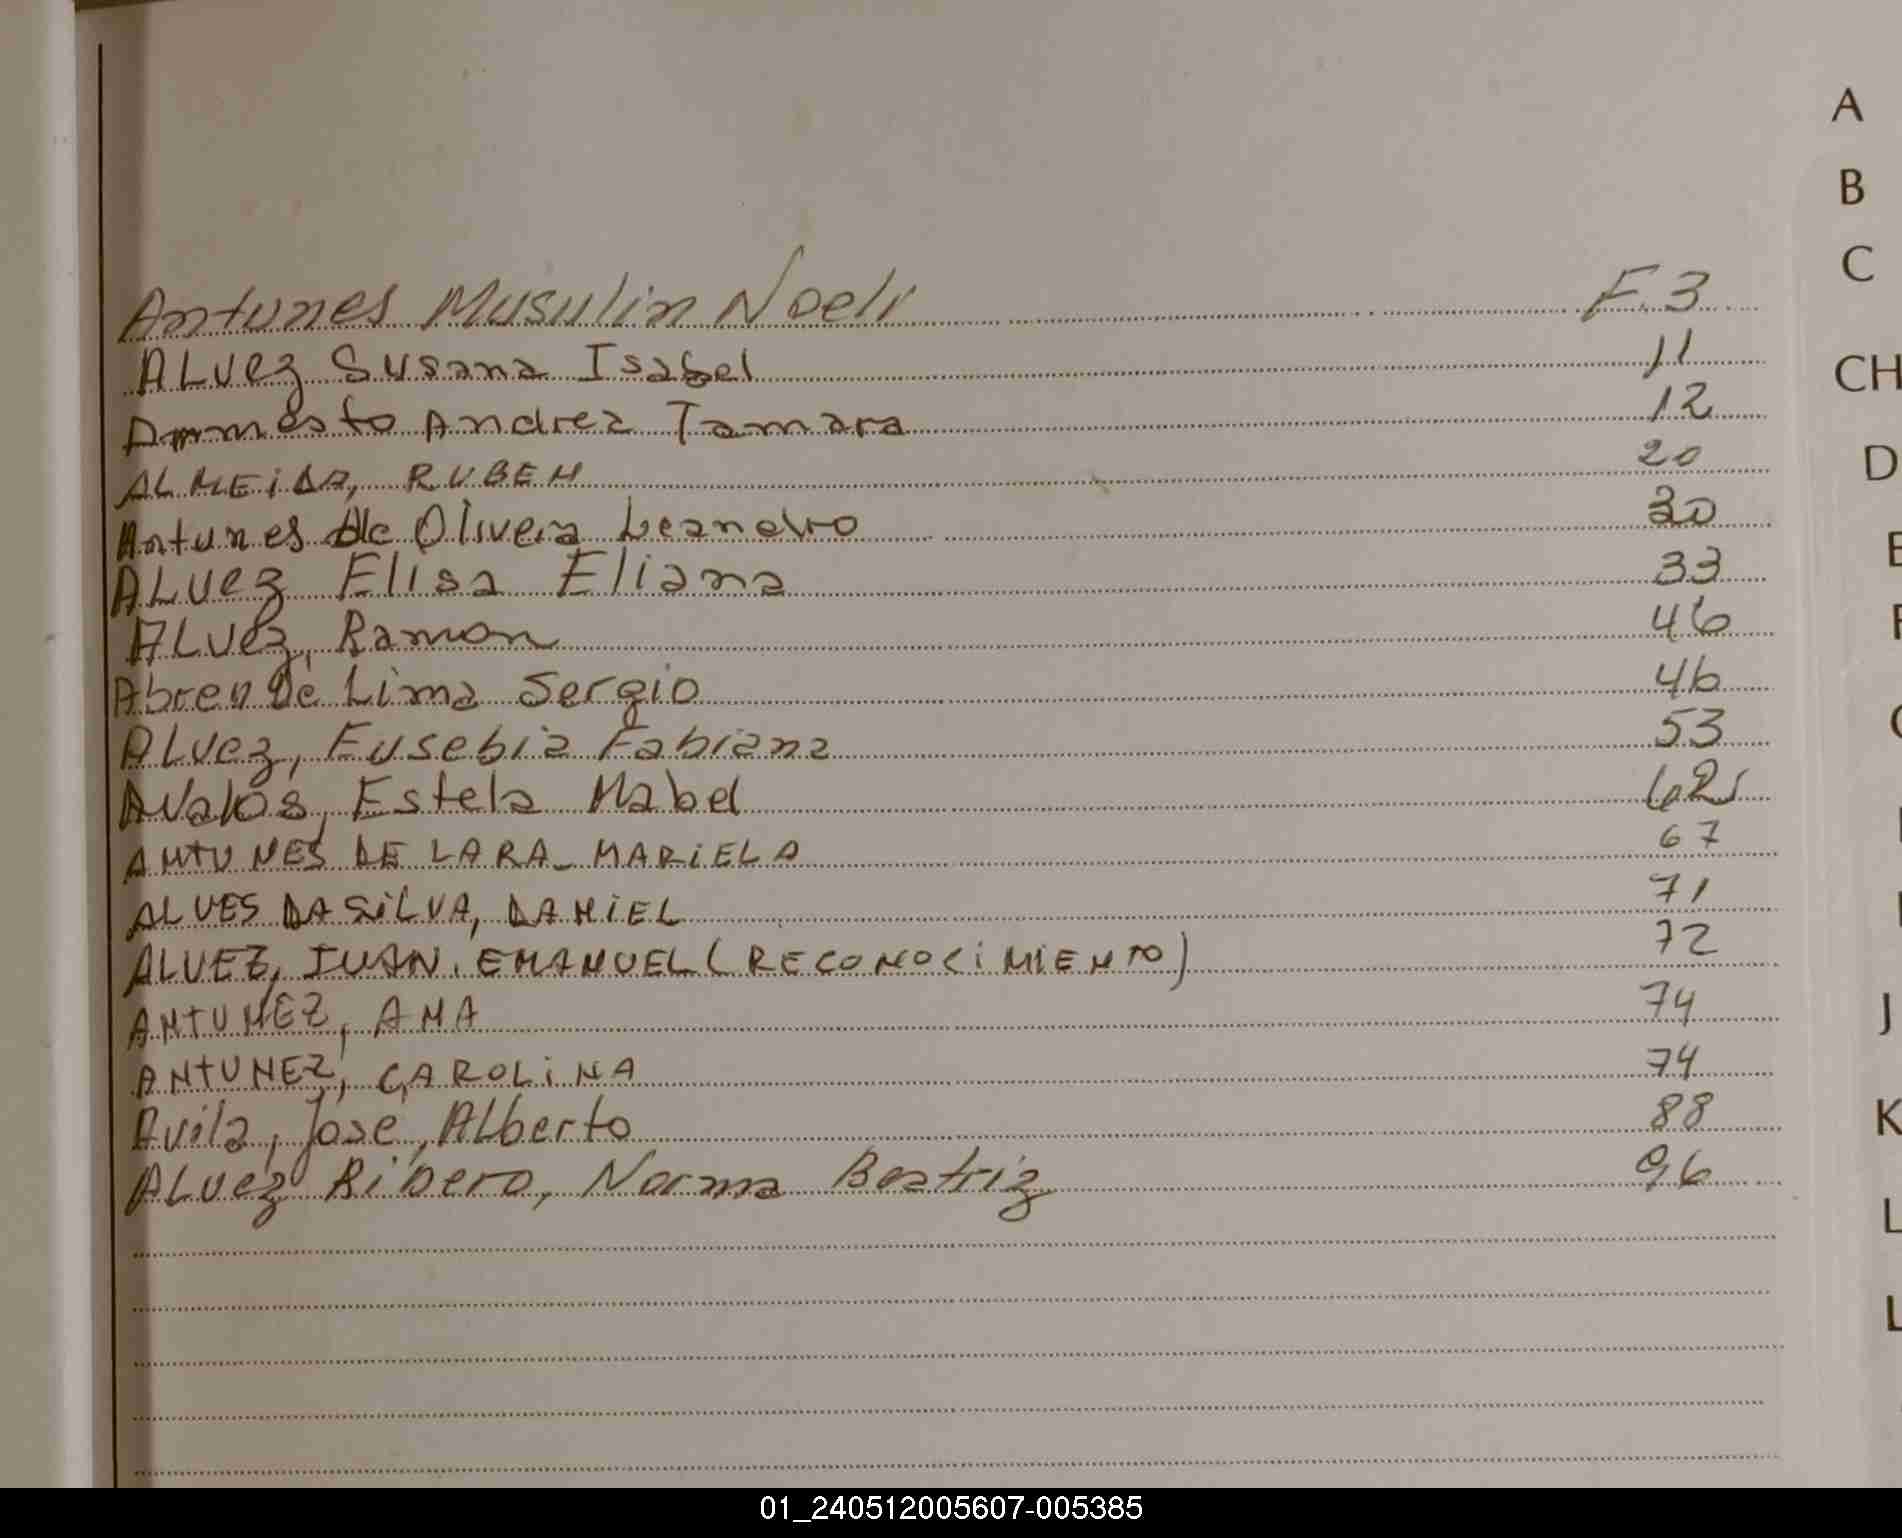 Antunes Musulin Noeli F.3
ALvez Susana Isabel 11
Armesto Andrea Tamara 12
ALMEIDA, RUBEN 20
Antunes de Olivera Leandro 30
ALvez Elisa Eliana 33
ALvez, Ramon 46
Abreu De Lima Sergio 46
ALvez, Eusebia Fabiana 53
Avalos, Estela Mabel
ANTUNES DE LARA MARIELA 67
ALVES DA SILVA, DANIEL 71
ALVEZ, JUAN EMANUEL (RECONOCIMIENTO) 72
ANTUNEZ, ANA 74
ANTUNEZ, CAROLINA 74
Avila, José, ALberto 88
ALvez Ribero, Norma Beatriz 96
A
B
C
CH
D
J
K
L
01_240512005607-005385